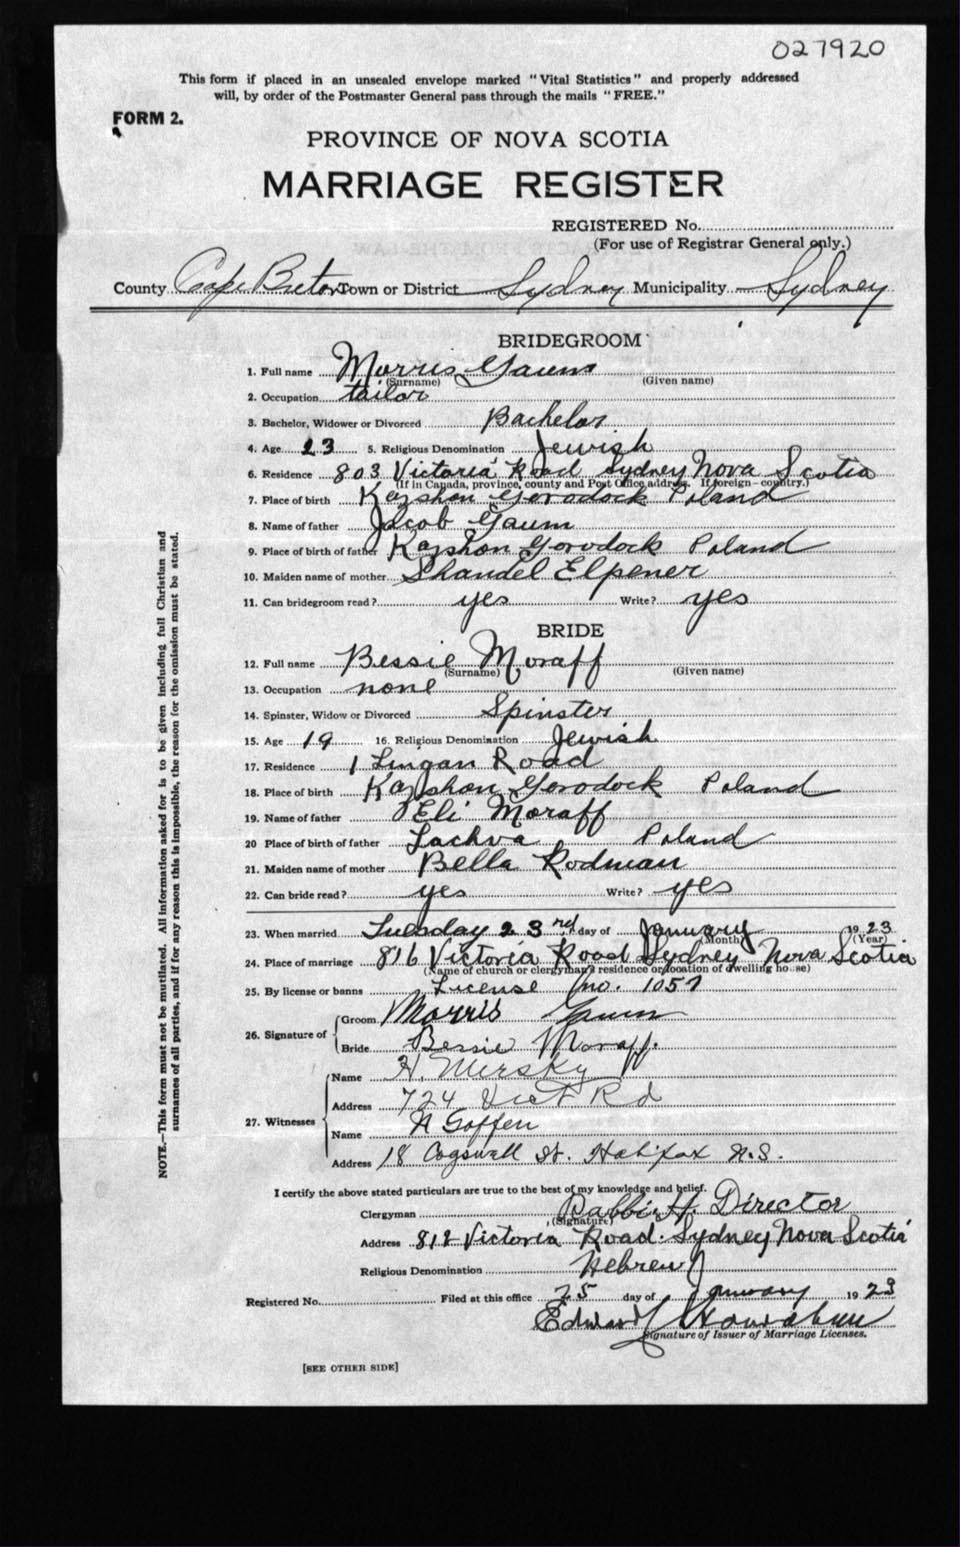 027920
This form if placed in an unsealed envelope marked "Vital Statistics" and properly addressed
will, by order of the Postmaster General pass through the mails "FREE."
FORM 2.
PROVINCE OF NOVA SCOTIA
MARRIAGE REGISTER
REGISTERED No.
(For use of Registrar General only.)
County Cape Breton Town or District Sydney Municipality Sydney
BRIDEGROOM
1. Full name Morris Gaum
(Surname) (Given name)
2. Occupation tailor
3. Bachelor, Widower or Divorced Bachelor
4. Age 23 5. Religious Denomination Jewish
6. Residence 803 Victoria Road Sydney Nova Scotia
(If in Canada, province, county and Post Office address. If foreign—country.)
7. Place of birth Kazshon Gorodock Poland
8. Name of father Jacob Gaum
9. Place of birth of father Kazshon Gorodock Poland
10. Maiden name of mother Shandel Elpener
11. Can bridegroom read? yes Write? yes
BRIDE
12. Full name Bessie Moraff
(Surname) (Given name)
13. Occupation none
14. Spinster, Widow or Divorced Spinster
15. Age 19 16. Religious Denomination Jewish
17. Residence 1 Lingan Road
18. Place of birth Kazshon Gorodock Poland
19. Name of father Eli Moraff
20 Place of birth of father Lachva Poland
21. Maiden name of mother Bella Rodman
22. Can bride read? yes Write? yes
23. When married Tuesday 23rd day of January 1923
(Month) (Year)
24. Place of marriage 816 Victoria Road Sydney Nova Scotia
(Name of church or clergyman's residence or location of dwelling house)
25. By license or banns License no. 1057
26. Signature of Groom Morris Gaum
Bride Bessie Moraff.
27. Witnesses Name H. Mersky
Address 724 Vict Rd
Name N Goffen
Address 18 Cogswell St. Halifax N.S.
I certify the above stated particulars are true to the best of my knowledge and belief.
Clergyman Rabbi H. Director
(Signature)
Address 812 Victoria Road. Sydney Nova Scotia
Religious Denomination Hebrew
Registered No. Filed at this office 25 day of January 1923
Edward
Signature of Issuer of Marriage Licenses.
[SEE OTHER SIDE]
NOTE.—This form must not be mutilated. All information asked for is to be given including full Christian and
surnames of all parties, and if for any reason this is impossible, the reason for the omission must be stated.